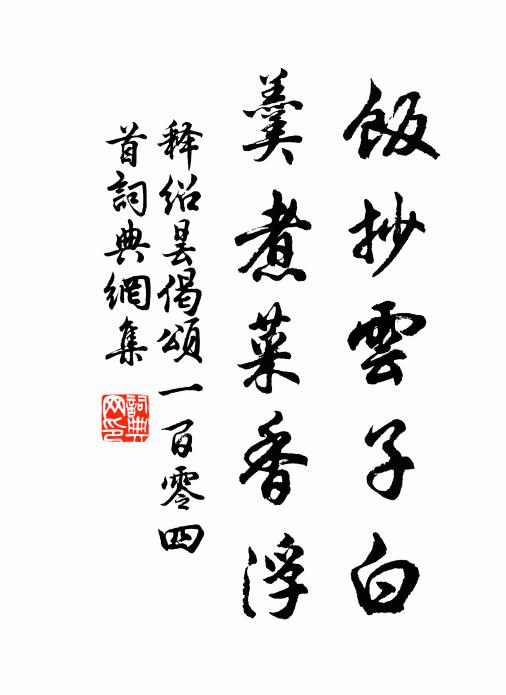 飯抄雲子白
羹煮菜香浮
释绍昙偈頌一百零四
首詞典網集
詞典
网印